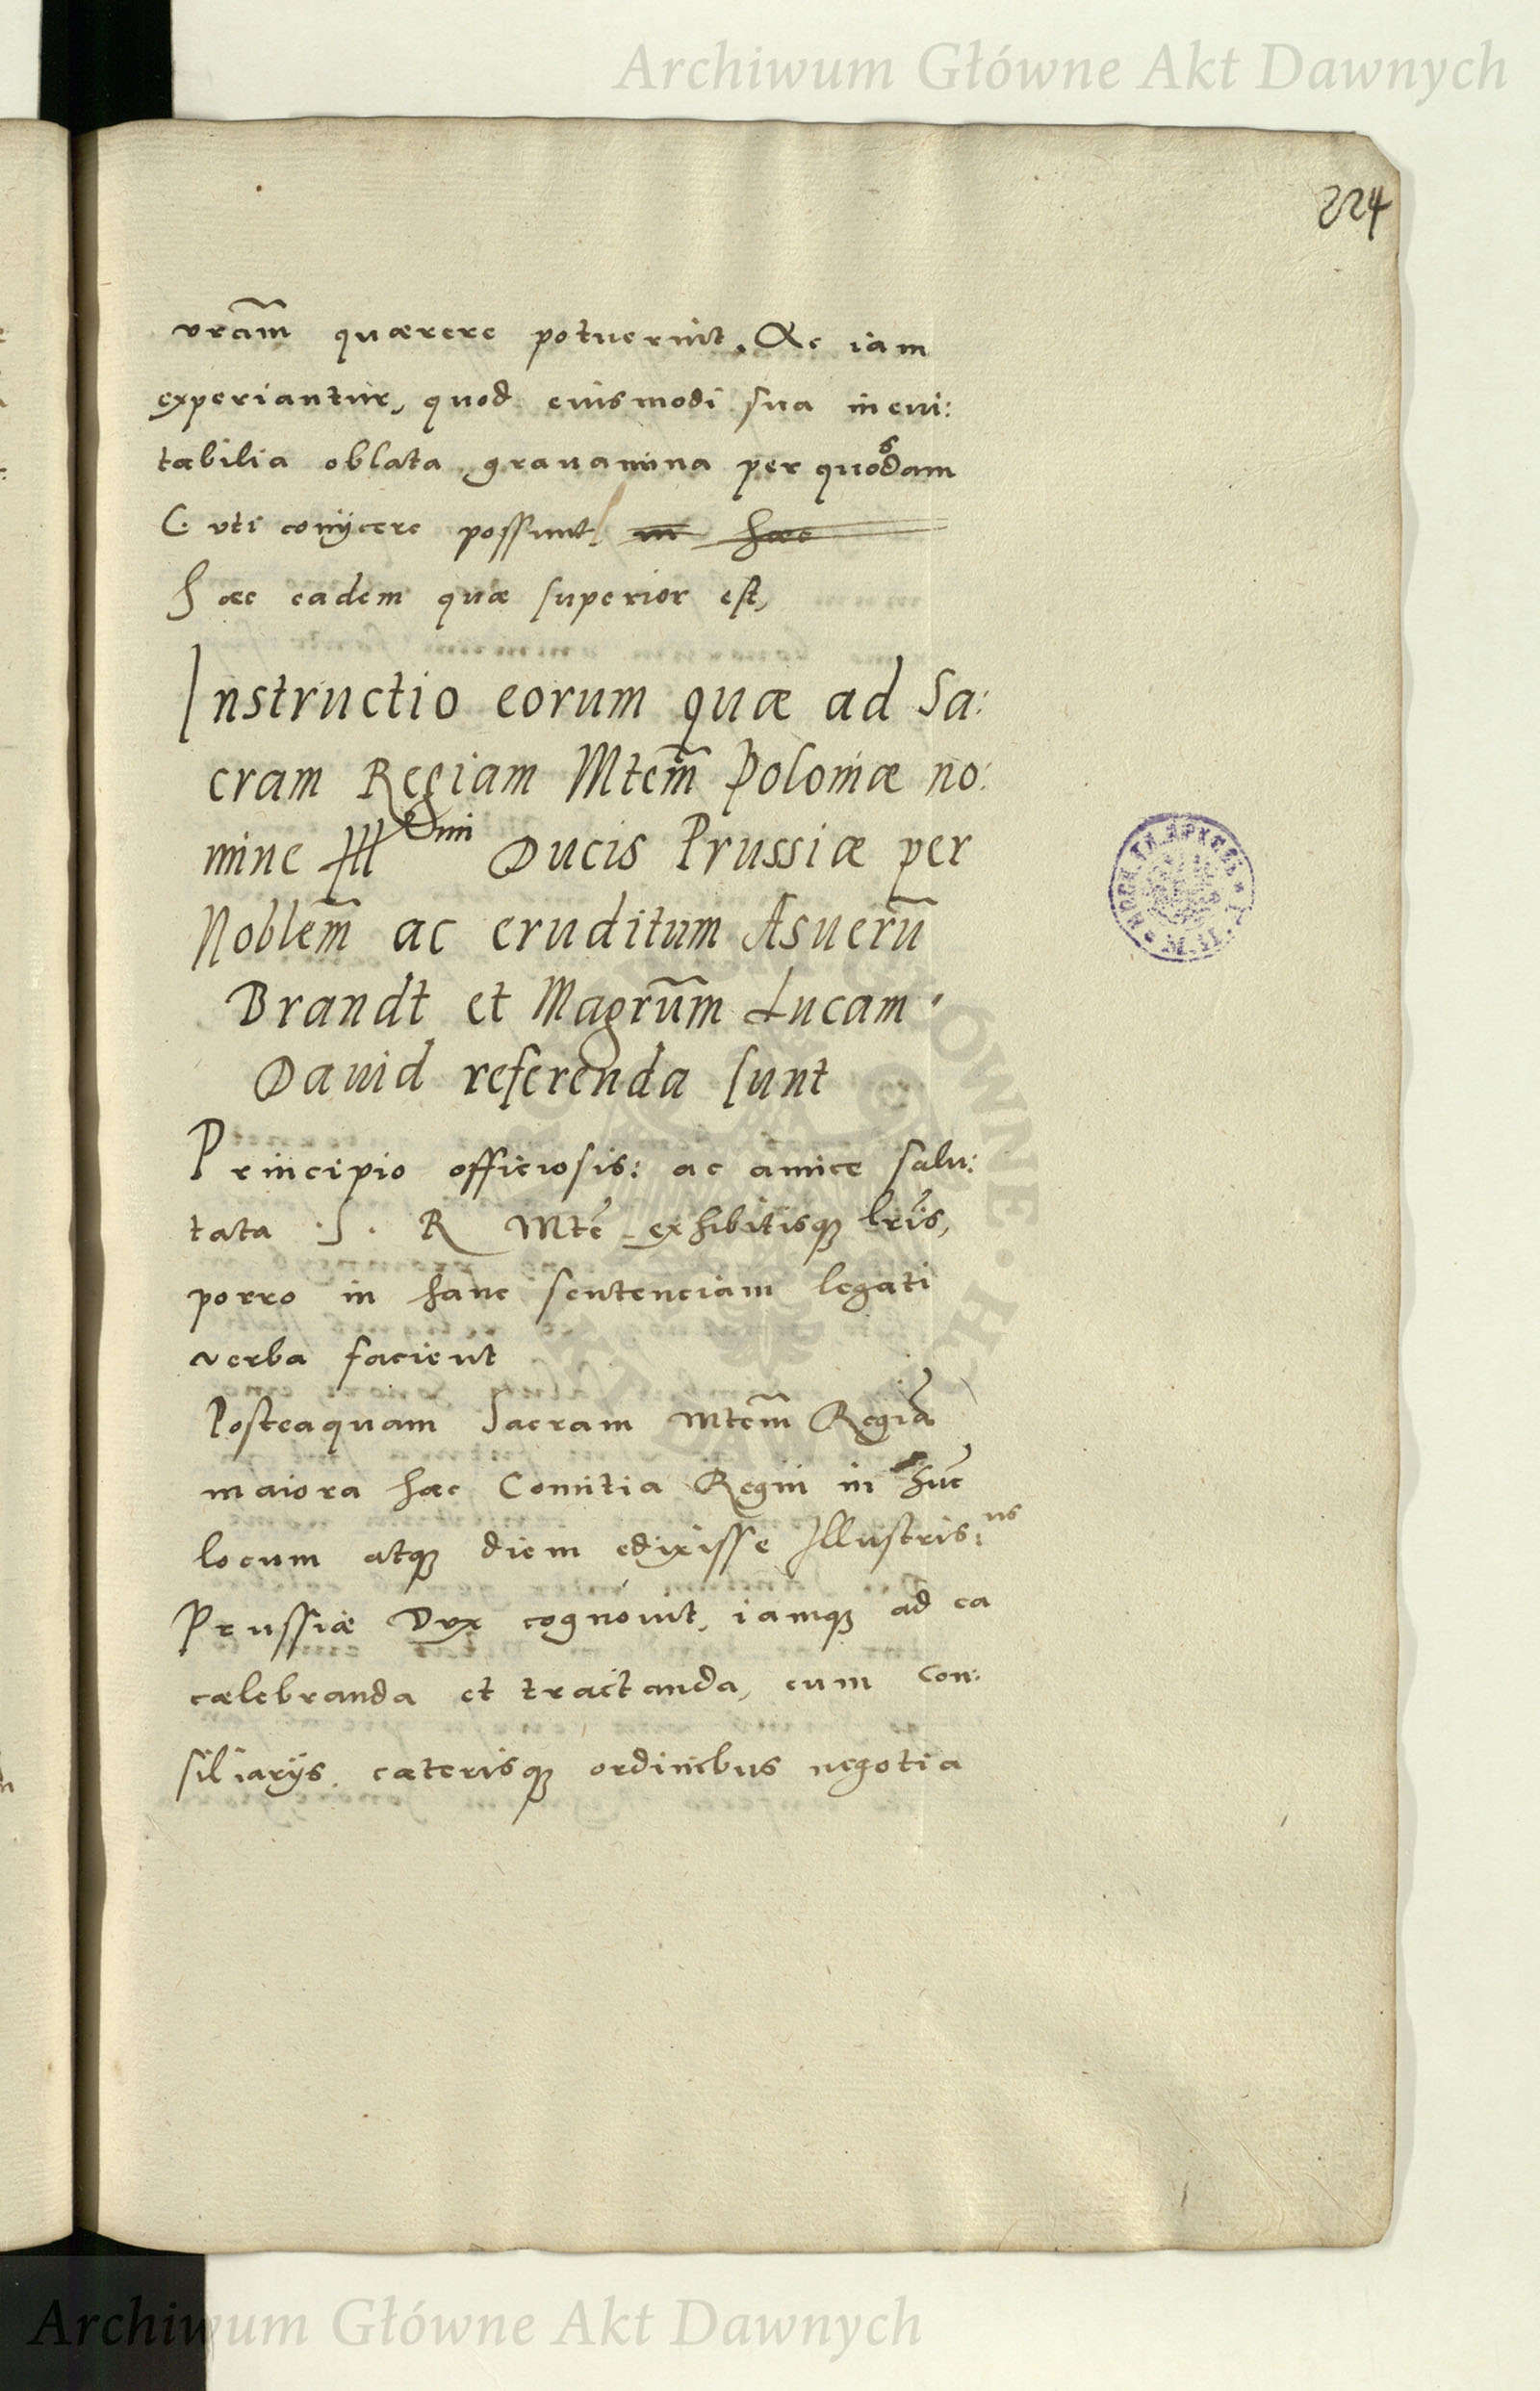 Archiwum Główne Akt Dawnych
224
vram̃ quærere potuerint. Ac iam
experiantur, quod eiusmodi sua inevi:
tabilia oblata gravamina per quosdam
C. vti conijcere possunt in hæc
Hæc eadem quæ superior est,
Instructio eorum quæ ad Sa:
cram Regiam Mtem̃ Poloniæ no:
mine Ill Dni Ducis Prussiæ per
Noblem̃ ac eruditum Asuerũ
Brandt et Magrũm Lucam
Dauid referenda sunt
Principio officiosis: ac amice salu:
tata .S. R Mtẽ exhibitisq; lrĩs,
porro in hanc sentenciam legati
verba facient
Posteaquam Sacram Mtem̃ Regiã
maiora hæc Comitia Regni in hũc
locum atq; diem edixisse Illustris:us
Prussiæ Dux cognouit, iamq; ad ea
cælebranda et tractanda, cum Con:
siliarijs cæterisq; ordinibus negotia
Archiwum Główne Akt Dawnych